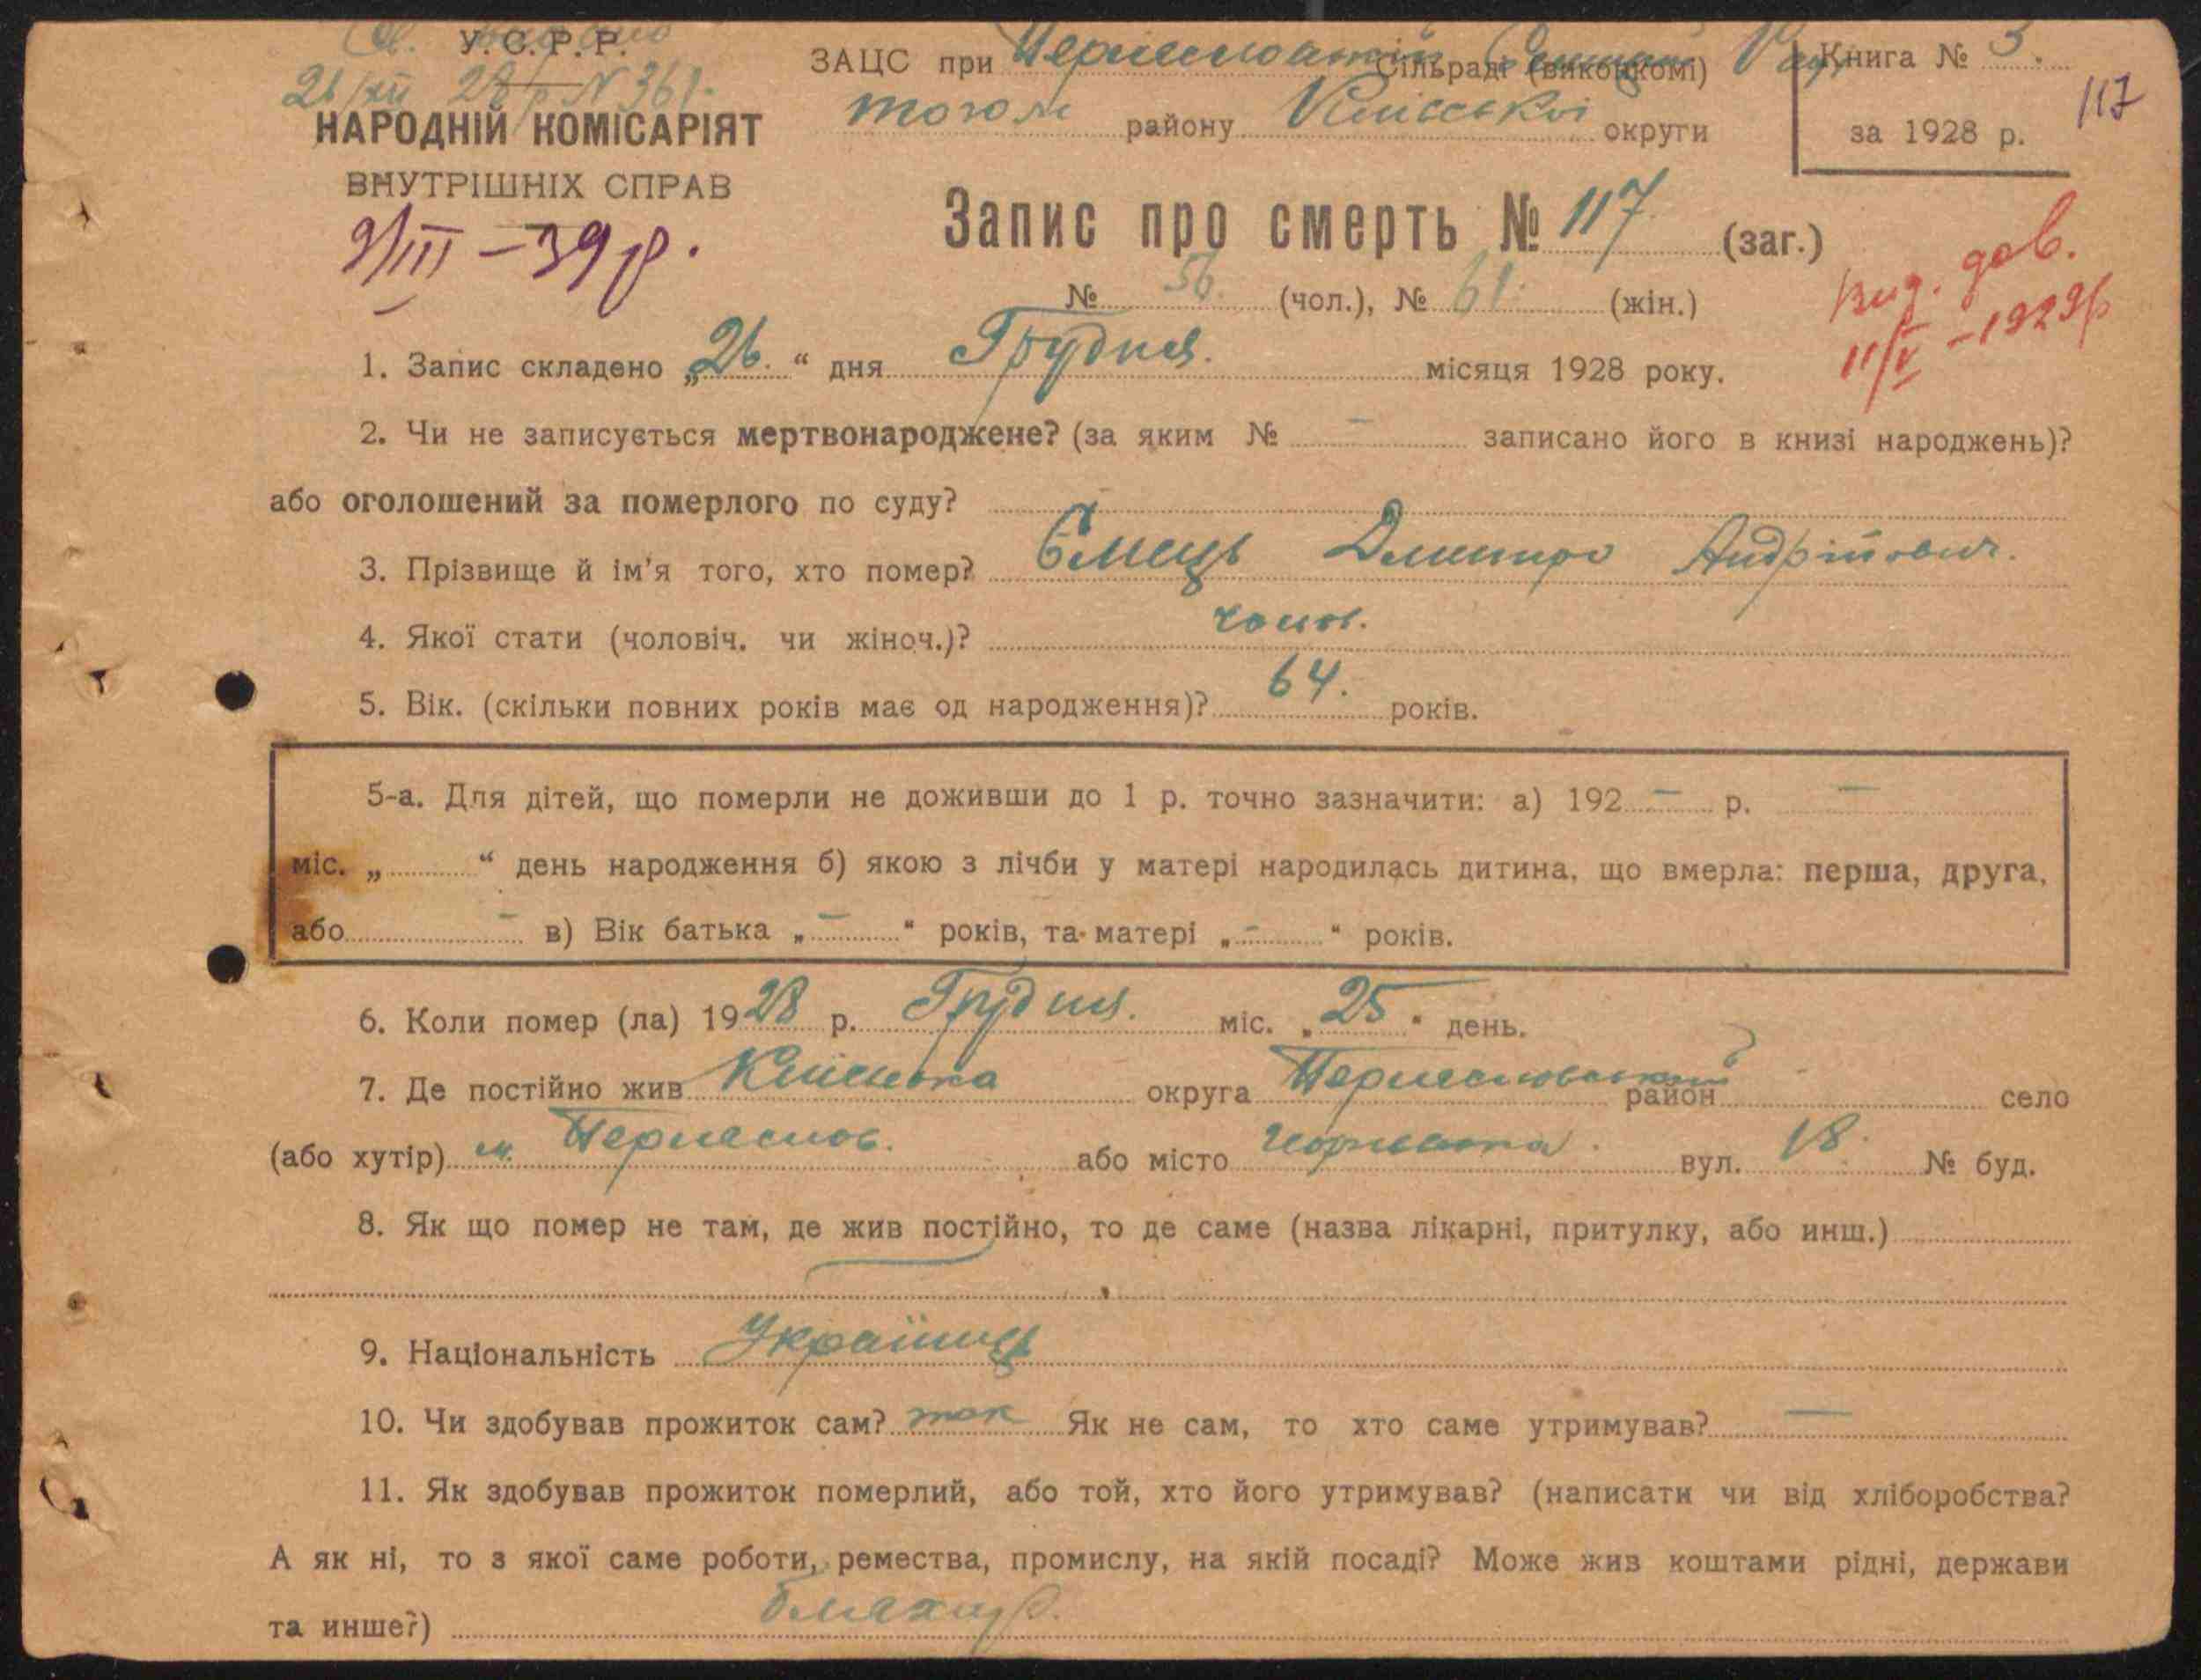 У.С.Р.Р.
21/XII 28 р N 361.
НАРОДНІЙ КОМІСАРІЯТ
ВНУТРІШНІХ СПРАВ
9/III – 39 р.
ЗАЦС при Сільраді (виконкомі)
району округи
Книга № 3.
за 1928 р.
117
Запис про смерть № 117 (заг.)
№ 56. (чол.), № 61. (жін.)
Вид. дов.
11/V – 1929р
1. Запис складено „26.“ дня Грудня. місяця 1928 року.
2. Чи не записується мертвонароджене? (за яким № – записано його в книзі народжень)?
або оголошений за померлого по суду?
3. Прізвище й ім'я того, хто помер? Ємець Дмитро Андрійович.
4. Якої стати (чоловіч. чи жіноч.)? чолов.
5. Вік. (скільки повних років має од народження)? 64. років.
5-а. Для дітей, що померли не доживши до 1 р. точно зазначити: а) 192 – р. –
міс. „ “ день народження б) якою з лічби у матері народилась дитина, що вмерла: перша, друга,
або – в) Вік батька „ – “ років, та матері „ – “ років.
6. Коли помер (ла) 1928 р. Грудня. міс. „25“ день.
7. Де постійно жив округа район село
(або хутір) м. або місто вул. 18. № буд.
8. Як що помер не там, де жив постійно, то де саме (назва лікарні, притулку, або инш.)
9. Національність Українець
10. Чи здобував прожиток сам? так Як не сам, то хто саме утримував? –
11. Як здобував прожиток померлий, або той, хто його утримував? (написати чи від хліборобства?
А як ні, то з якої саме роботи, ремества, промислу, на якій посаді? Може жив коштами рідні, держави
та инше?) бляхар.